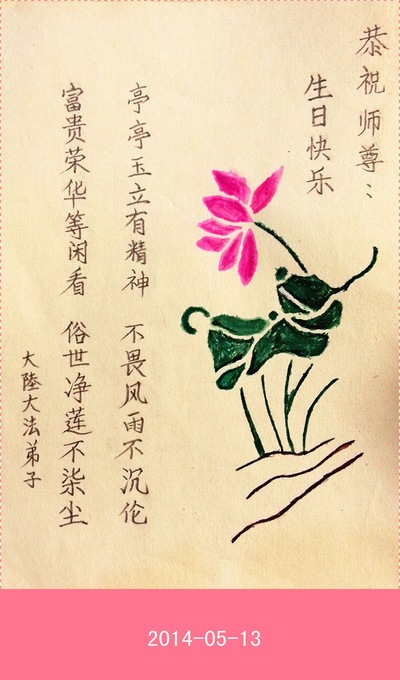 恭祝师尊：
生日快乐
亭亭玉立有精神 不畏风雨不沉伦
富贵荣华等闲看 俗世净莲不柒尘
大陸大法弟子
2014-05-13